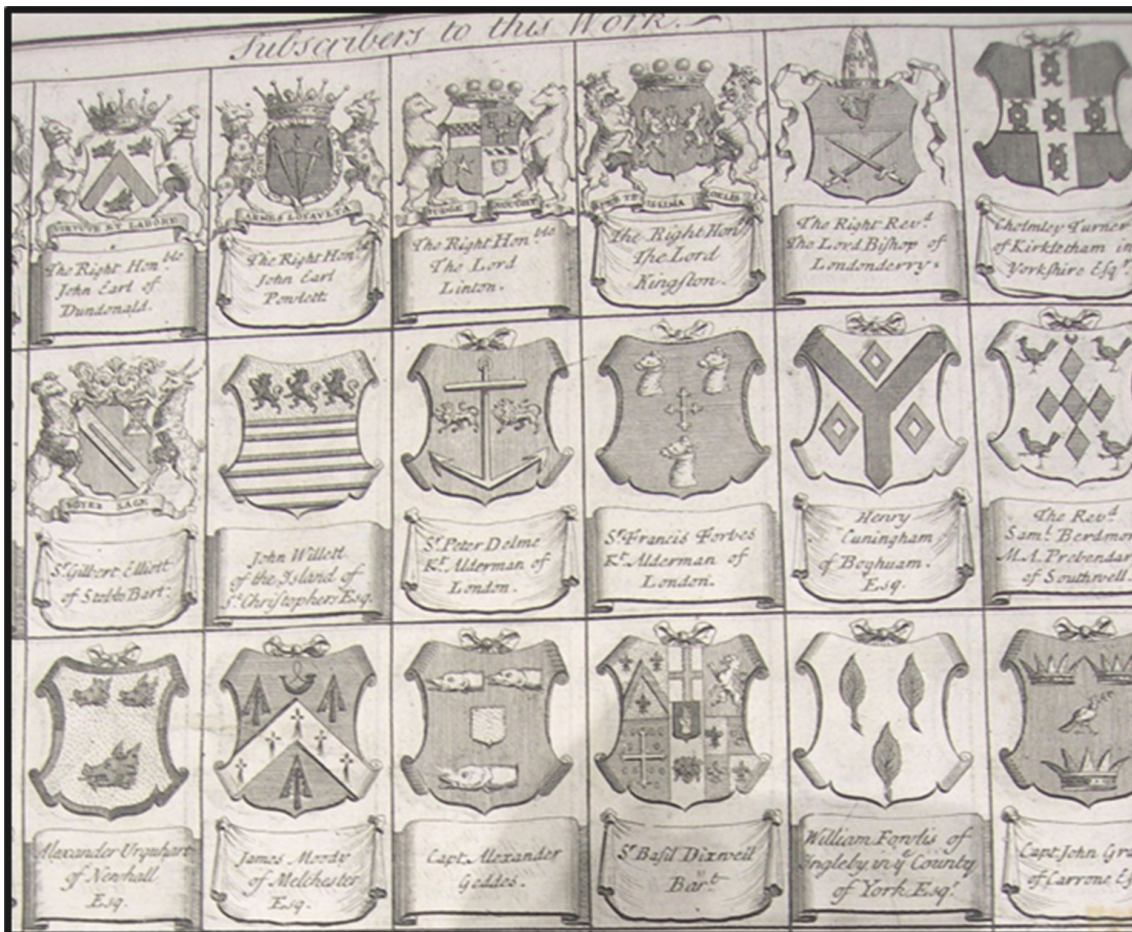 Subscribers to this Work.
VIRTUTE ET LABORE
The Right Hon.ble
John Earl of
Dundonald.
ARMES LOYAULTA
The Right Hon.ble
John Earl
Powlett.
JUDGE NOUGHT
The Right Hon.ble
The Lord
Linton.
The Right Hon.
The Lord
Kingston.
The Right Rev.d
The Lord Bishop of
Londonderry.
Cholmley Turner
of Kirkletham in
Yorkshire Esq.r
SOYES SAGE
S.r Gilbert Elliott
of Stobbs Bar.t
John Willett
of the Island of
S.t Christophers Esq.
S.r Peter Delme
K.t Alderman of
London.
S.r Francis Forbes
K.t Alderman of
London.
Henry
Cuningham
of Boghuam.
Esq.
The Rev.d
Sam.l Berdmor
M.A. Prebendar
of Southwell.
Alexander Urquhart
of Newhall
Esq.
James Moody
of Melchester
Esq.
Capt. Alexander
Geddes.
S.r Basil Dixwell
Bar.t
William Fowlis of
Ingleby in y.e County
of York. Esq.r
Capt. John Gra
of Carrone Es